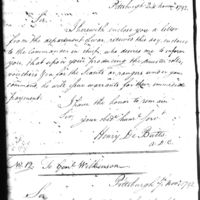 Pittsburgh 2d Novem. 1792
Sir,
I herewith enclose you a letter
from the department of war, returned this day, enclosed
to the commander in chief, who desires me to inform
you, that upon your producing the muster rolls,
vouchers &ca for the scouts or rangers under your
command, he will issue warrants for their immediate
payment.
I have the honor to remain
Sir
your obt. hum. servt.
Henry De Butts
A.D.C.
No. 12. To Genl. Wilkinson
Pittsburgh Novr. 1792
Sir